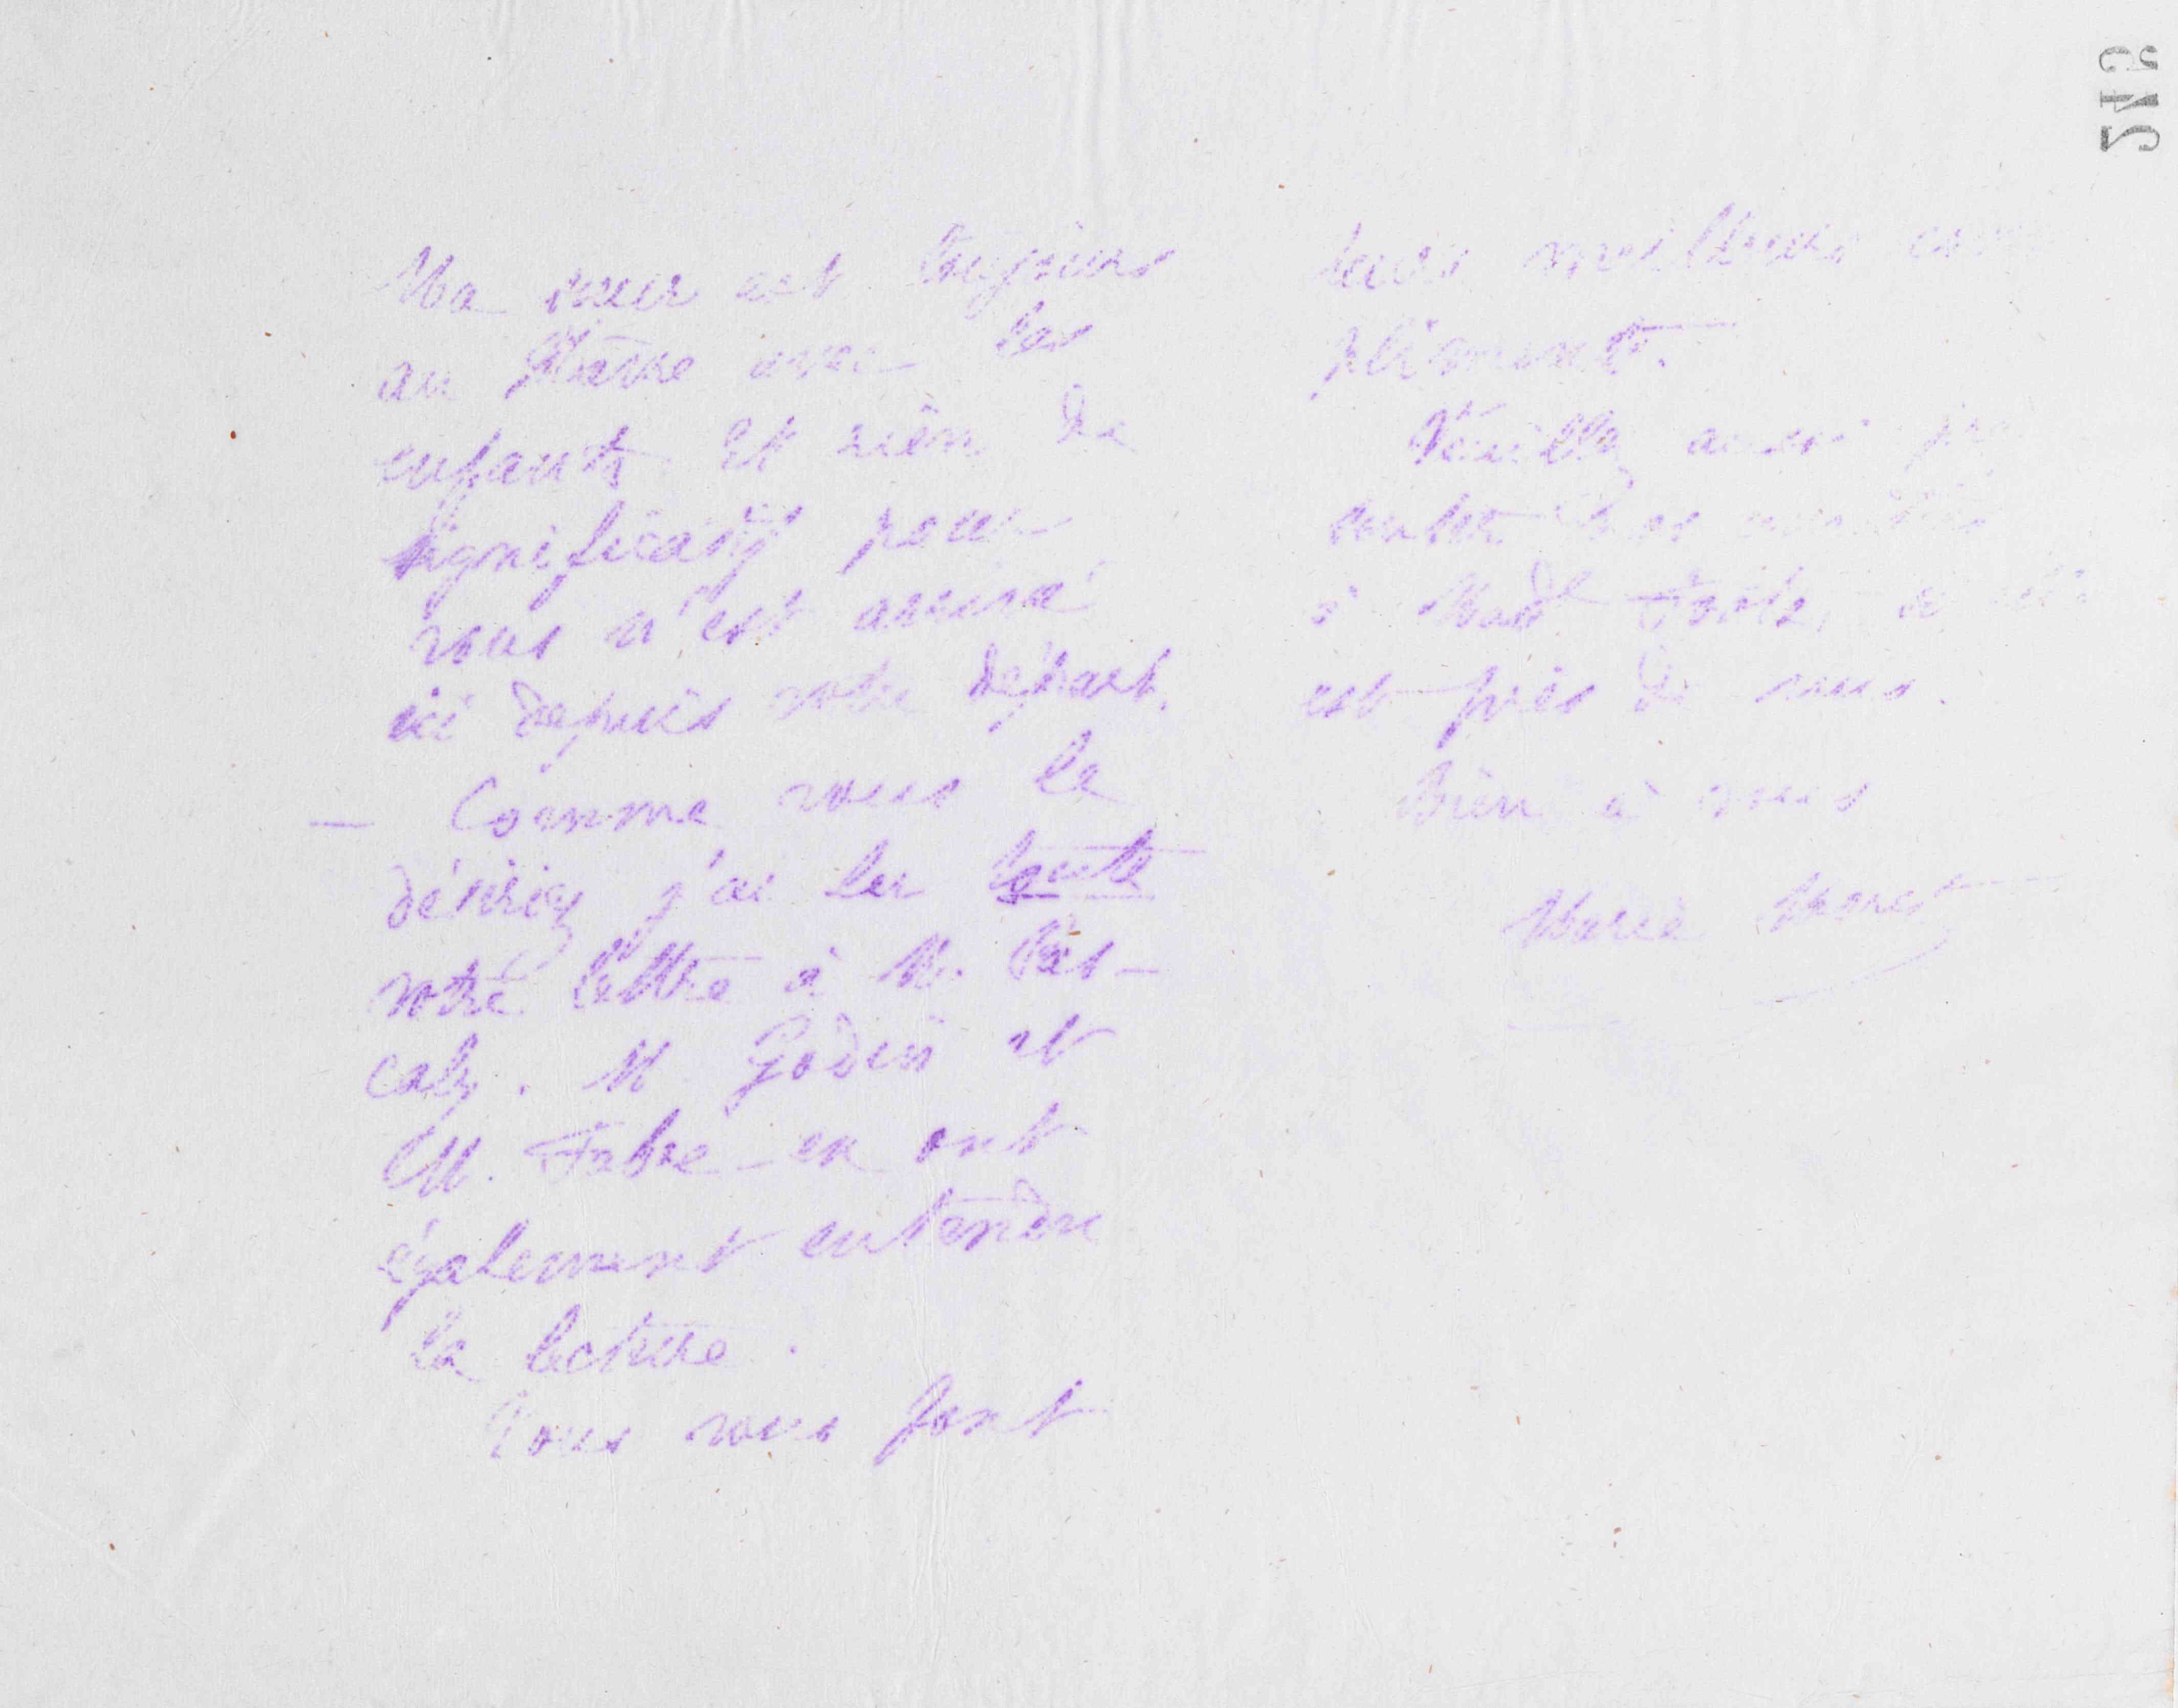 Ma sœur est toujours
au Havre avec les
enfants. Et rien de
significatif pour
vous n'est arrivé
ici depuis votre départ.
— Comme vous le
désiriez j'ai lu toute
votre lettre à M. Pas-
caly. M Godin et
M. Fabre en ont
également entendu
la lecture.
Tous vous font
leurs meilleurs com
pliments.
Veuillez aussi pré
senter mes
à Mad
est près de vous.
Bien à vous
Marie Moret
542